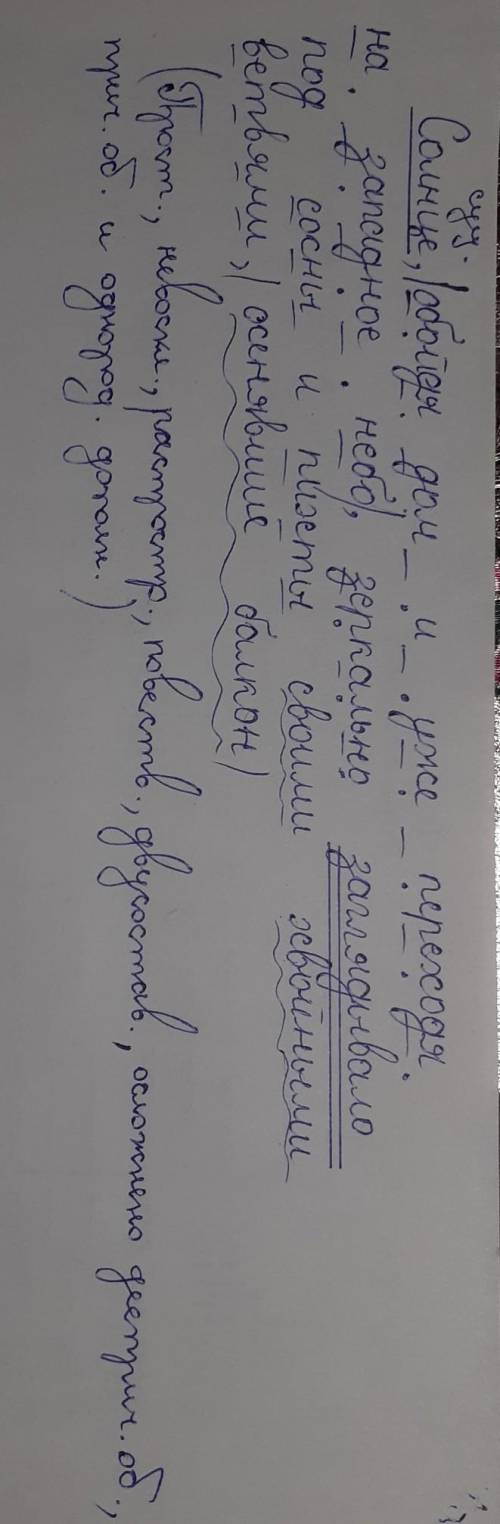 сущ.
Солнце, обойдя дом и уже переходя
на западное небо, зеркально заглядывало
под сосны и пихты своими хвойными
ветвями, осенявшие балкон
(Прост., невоскл., распростр., повеств., двусостав., осложнено дееприч. об.,
прич. об. и однород. дополн.)